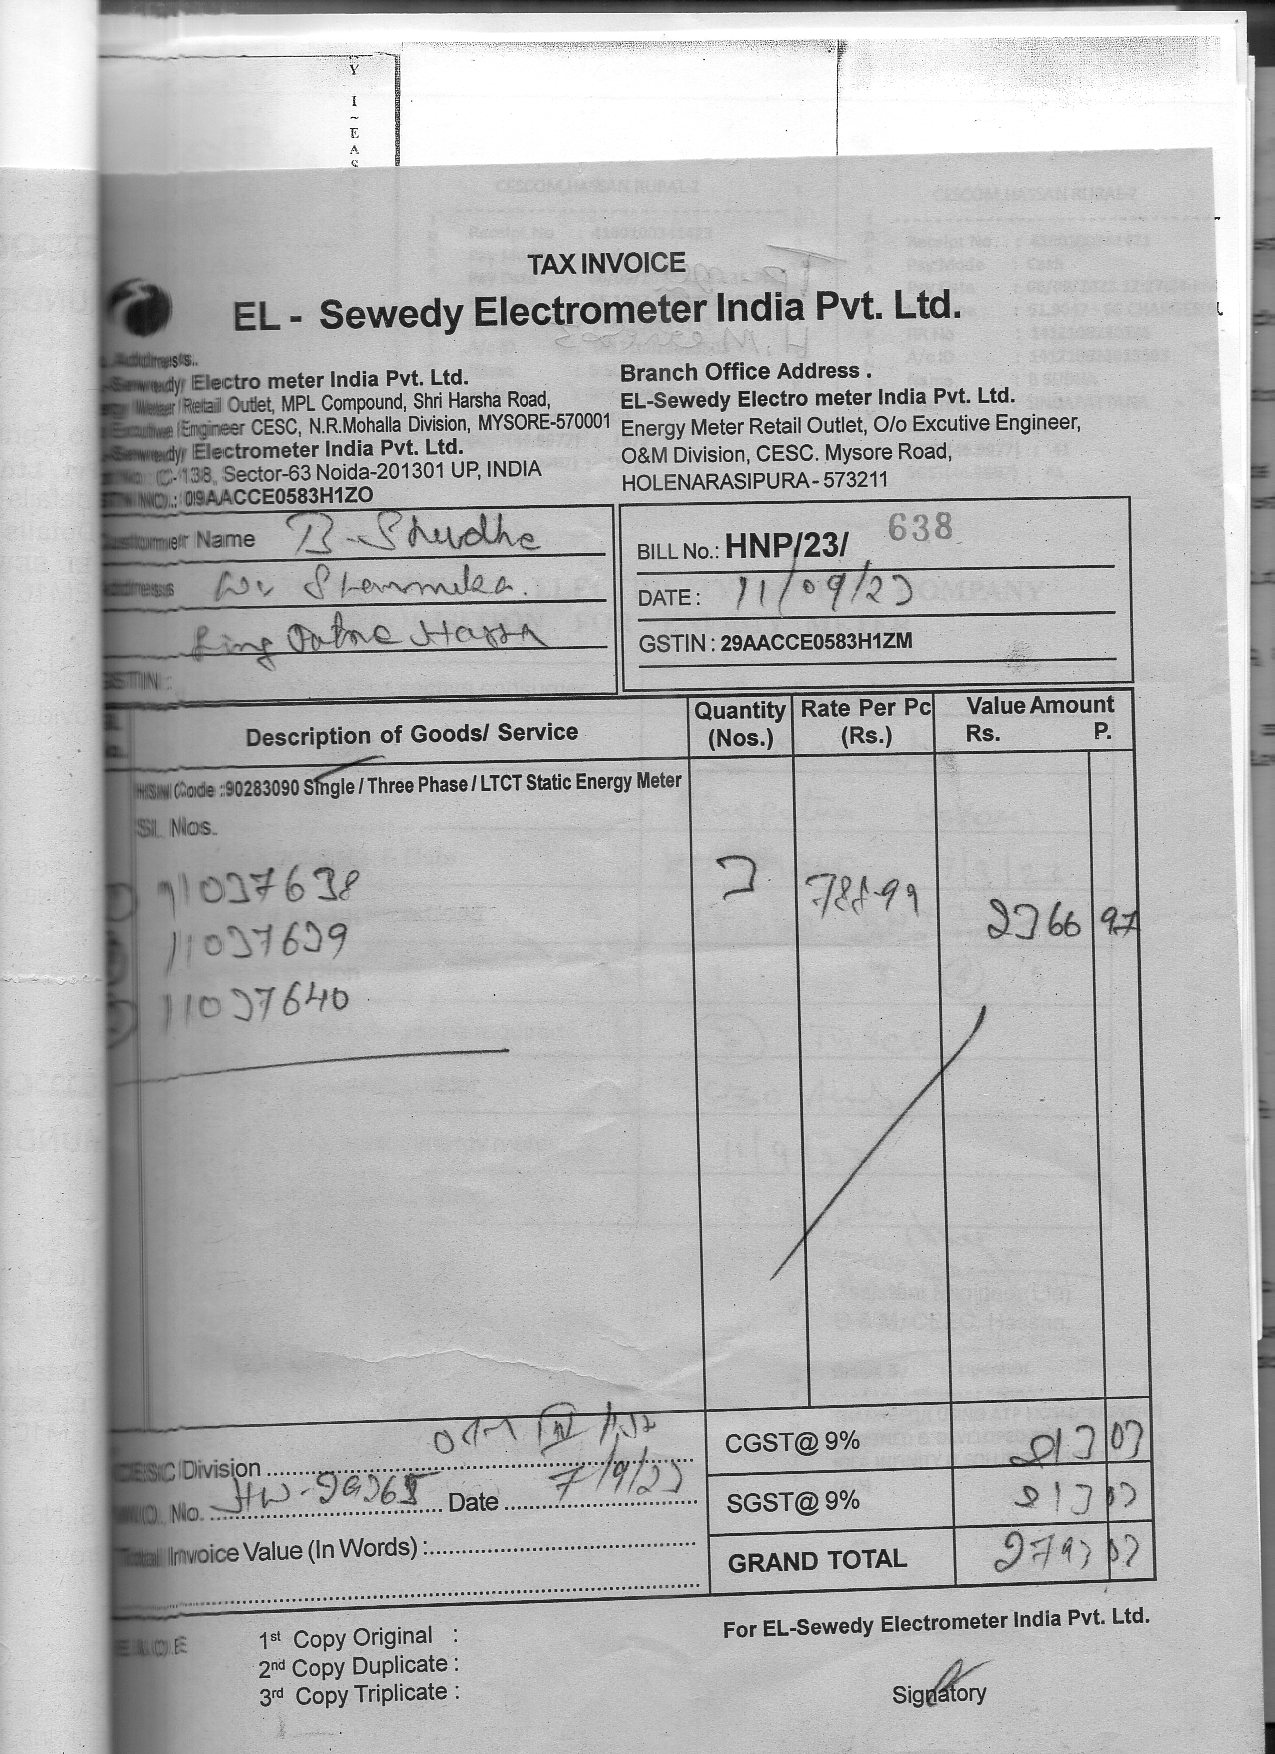 Y
I
~
E
A
TAX INVOICE
EL - Sewedy Electrometer India Pvt. Ltd.
Address..
Sewedy Electro meter India Pvt. Ltd.
Retail Outlet, MPL Compound, Shri Harsha Road,
Executive Engineer CESC, N.R.Mohalla Division, MYSORE-570001
Sewedy Electrometer India Pvt. Ltd.
C-138, Sector-63 Noida-201301 UP, INDIA
: 09AACCE0583H1ZO
Branch Office Address .
EL-Sewedy Electro meter India Pvt. Ltd.
Energy Meter Retail Outlet, O/o Excutive Engineer,
O&M Division, CESC. Mysore Road,
HOLENARASIPURA - 573211
Customer Name B-
Address
GSTIN :
BILL No.: HNP/23/ 638
DATE : 11/09/23
GSTIN : 29AACCE0583H1ZM
Description of Goods/ Service
Quantity (Nos.)
Rate Per Pc (Rs.)
Value Amount
Rs. P.
HSN Code :90283090 Single / Three Phase / LTCT Static Energy Meter
SL Nos.
11037638 3 788-99 2366 97
11037639
11037640
CESC Division
W.O. No. Date 7/9/23
Total Invoice Value (In Words) :
CGST@ 9% 213 03
SGST@ 9% 213 03
GRAND TOTAL 2793 03
E.&O.E
1st Copy Original :
2nd Copy Duplicate :
3rd Copy Triplicate :
For EL-Sewedy Electrometer India Pvt. Ltd.
Signatory